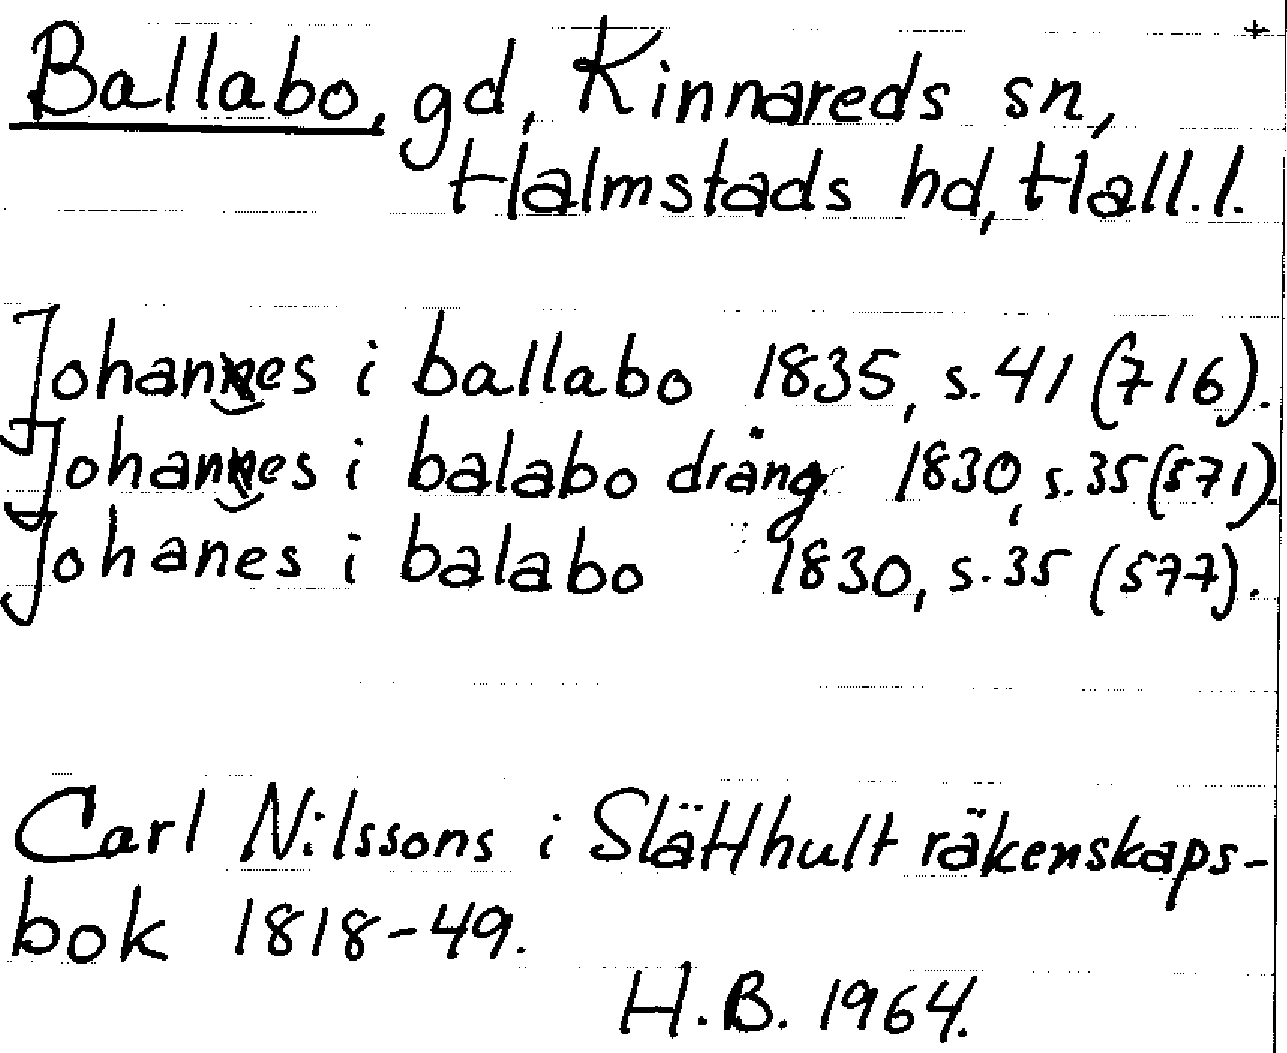 Ballabo, gd, Kinnareds sn,
Halmstads hd, Hall. l.
Johannes i ballabo 1835, s. 41 (716).
Johannes i balabo dräng 1830, s. 35 (571).
Johanes i balabo 1830, s. 35 (577).
Carl Nilssons i Slätthult räkenskaps-
bok 1818-49.
H.B. 1964.